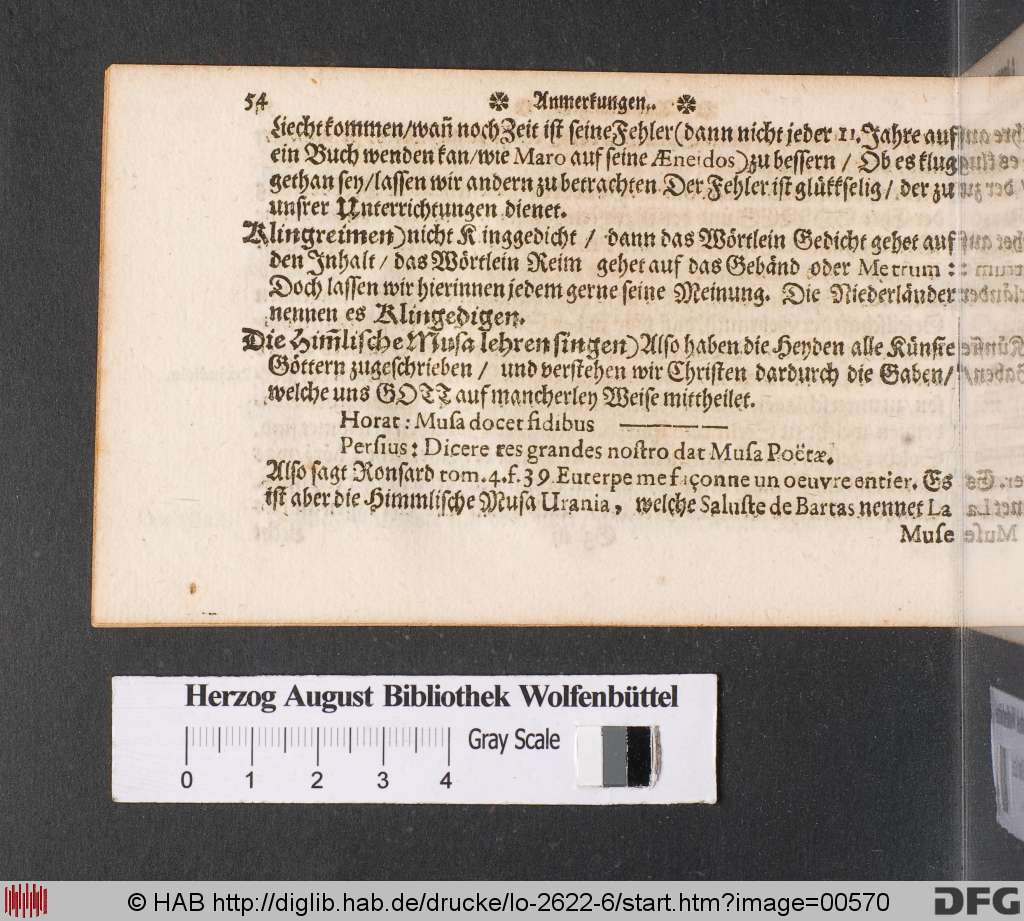 54 ✽ Anmerkungen. ✽
Liecht kommen/wañ noch Zeit ist seine Fehler (dann nicht jeder 11. Jahre auf
ein Buch wenden kan/wie Maro auf seine Æneidos) zu bessern / Ob es klug
gethan sey/lassen wir andern zu betrachten Der Fehler ist glükkselig / der zu
unsrer Unterrichtungen dienet.
Klingreimen) nicht K inggedicht / dann das Wörtlein Gedicht gehet auf
den Inhalt / das Wörtlein Reim gehet auf das Gebänd oder Metrum :
Doch lassen wir hierinnen jedem gerne seine Meinung. Die Niederländer
nennen es Klingedigen.
Die Him̃lische Musa lehren singen) Also haben die Heyden alle Künste
Göttern zugeschrieben / und verstehen wir Christen dardurch die Gaben/
welche uns GOTT auf mancherley Weise mittheilet.
Horat : Musa docet fidibus ————
Persius : Dicere res grandes nostro dat Musa Poëtæ.
Also sagt Ronsard tom. 4. f. 39 Euterpe me façonne un oeuvre entier. Es
ist aber die Himmlische Musa Urania, welche Saluste de Bartas nennet La
Muse
Herzog August Bibliothek Wolfenbüttel
0 1 2 3 4 Gray Scale
© HAB http://diglib.hab.de/drucke/lo-2622-6/start.htm?image=00570
DFG